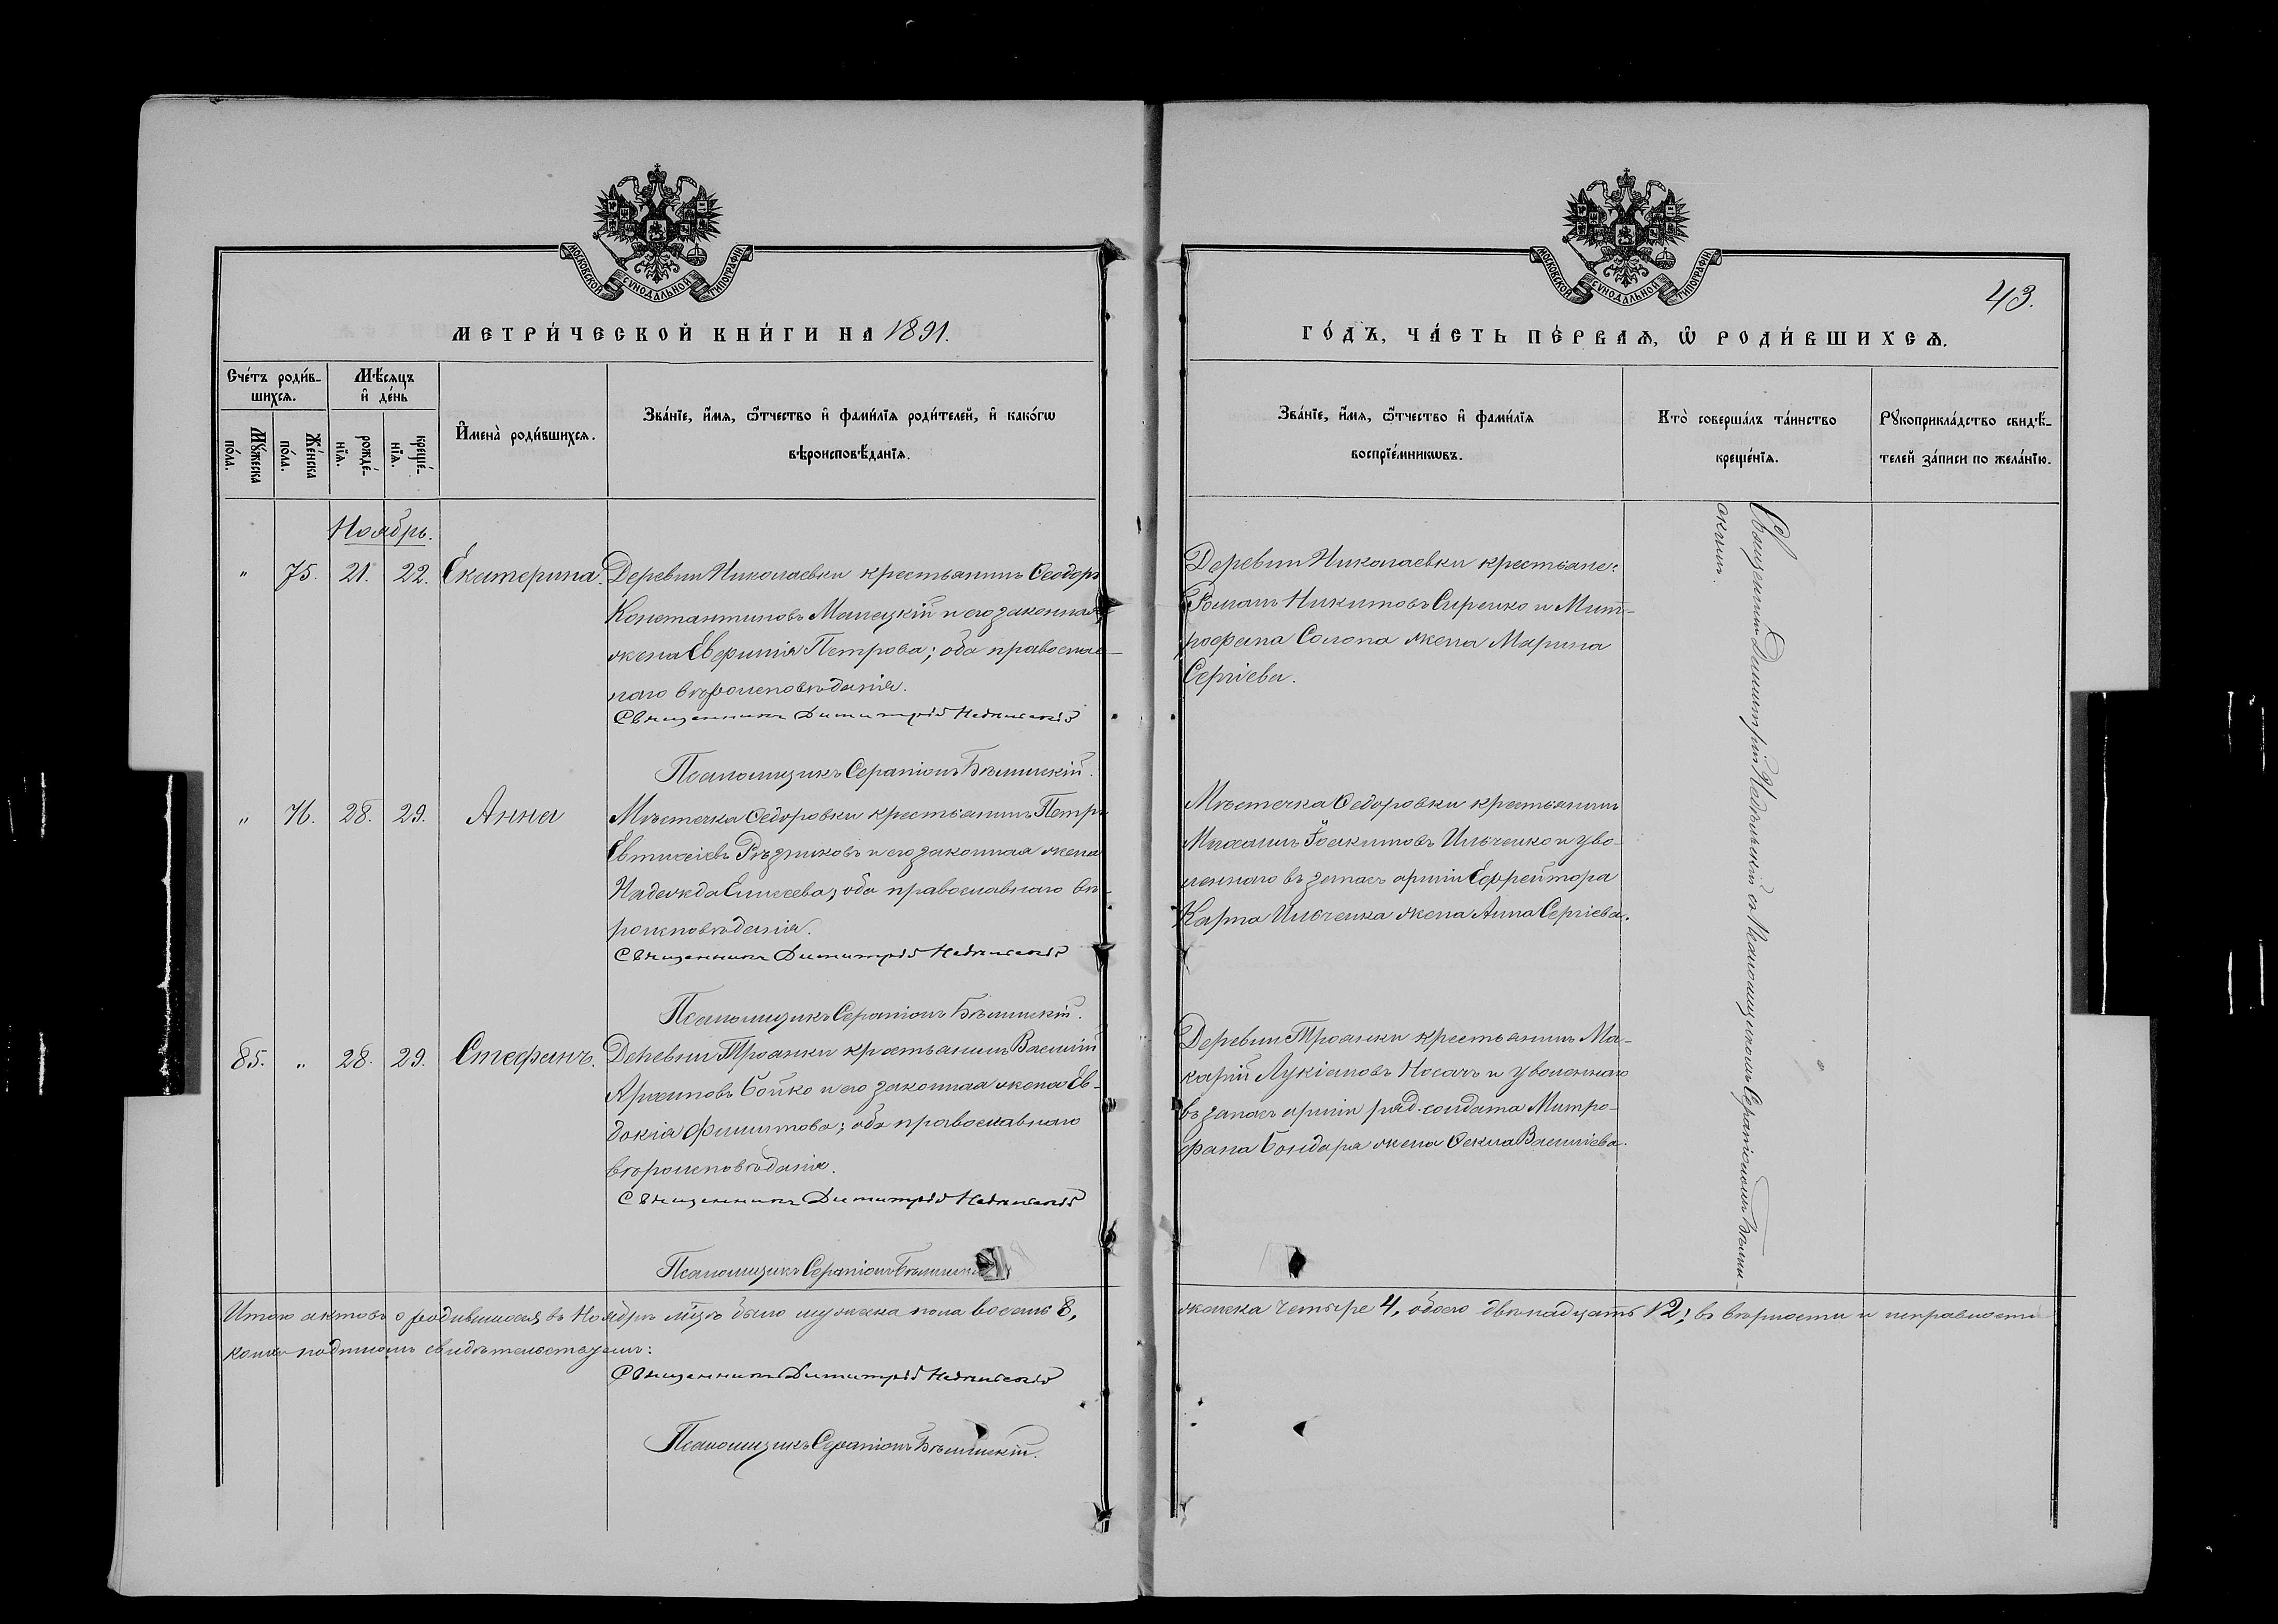 МОСКОВСКОЙ СѴНОДАЛЬНОЙ ТИПОГРАФІИ
МЕТРИ́ЧЕСКОЙ КНИ́ГИ НА 1891.
Сче́тъ роди́в-
шихсѧ.
Мѣ́сѧцъ
и҆ де́нь
Мꙋ́жеска
по́ла.
Же́нска
по́ла.
рожде́-
нїѧ.
креще́-
нїѧ.
И҆мена̀ роди́вшихсѧ.
Зва́нїе, и҆́мѧ, ѻ҆́тчество и҆ фами́лїѧ роди́телей, и҆ како́гѡ
вѣроисповѣ́данїѧ.
Ноябрь.
" 75. 21. 22. Екатерина. Деревни Николаевки крестьянинъ Ѳеодоръ
Константиновъ Малецкій и его законная
жена Евфимія Петрова; оба православ-
наго вѣроисповѣданія.
Священникъ Димитрій Недѣльскій
Псаломщикъ Серапіонъ Бѣлинскій.
" 76. 28. 29. Анна Мѣстечка Ѳедоровки крестьянинъ Петръ
Евтихіевъ Рѣзниковъ и его законная жена
Надежда Елисеева; оба православнаго вѣ-
роисповѣданія.
Священникъ Димитрій Недѣльскій
Псаломщикъ Серапіонъ Бѣлинскій.
85. " 28. 29. Стефанъ. Деревни Троянки крестьянинъ Василій
Архиповъ Бойко и его законная жена Ев-
докія Филиппова; оба православнаго
вѣроисповѣданія.
Священникъ Димитрій Недѣльскій
Псаломщикъ Серапіонъ Бѣлинскій
Итого актовъ о родившихся въ Ноябрѣ мѣс. было мужеска пола восемь 8,
подписомъ свидѣтельствуемъ:
Священникъ Димитрій Недѣльскій
Псаломщикъ Серапіонъ Бѣлинскій.
МОСКОВСКОЙ СѴНОДАЛЬНОЙ ТИПОГРАФІИ
43.
ГО́ДЪ, ЧА́СТЬ ПЕ́РВАѦ, Ѡ҆ РОДИ́ВШИХСѦ.
Зва́нїе, и҆́мѧ, ѻ҆́тчество и҆ фами́лїѧ
воспрїе́мникѡвъ.
Кто̀ соверша́лъ та́инство
креще́нїѧ.
Рꙋкоприкла́дство свидѣ́-
телей за́писи по жела́нїю.
Деревни Николаевки крестьяне:
Романъ Никитовъ Сиренко и Мит-
рофана Солопа жена Марина
Сергіева.
Мѣстечка Ѳедоровки крестьянинъ
Михаилъ Іоакимовъ Ильченко и уво-
леннаго въ запасъ арміи Ефрейтора
Карпа Ильченка жена Анна Сергіева.
Деревни Троянки крестьянинъ Ма-
карій Лукіановъ Носачъ и уволеннаго
въ запасъ арміи ряд. солдата Митро-
фана Бондаря жена Ѳекла Василіева.
Священникъ Димитрій Недѣльскій съ Псаломщикомъ Серапіономъ Бѣлин-
скимъ.
женска четыре 4, обоего двѣнадцать 12; въ вѣрности и исправности